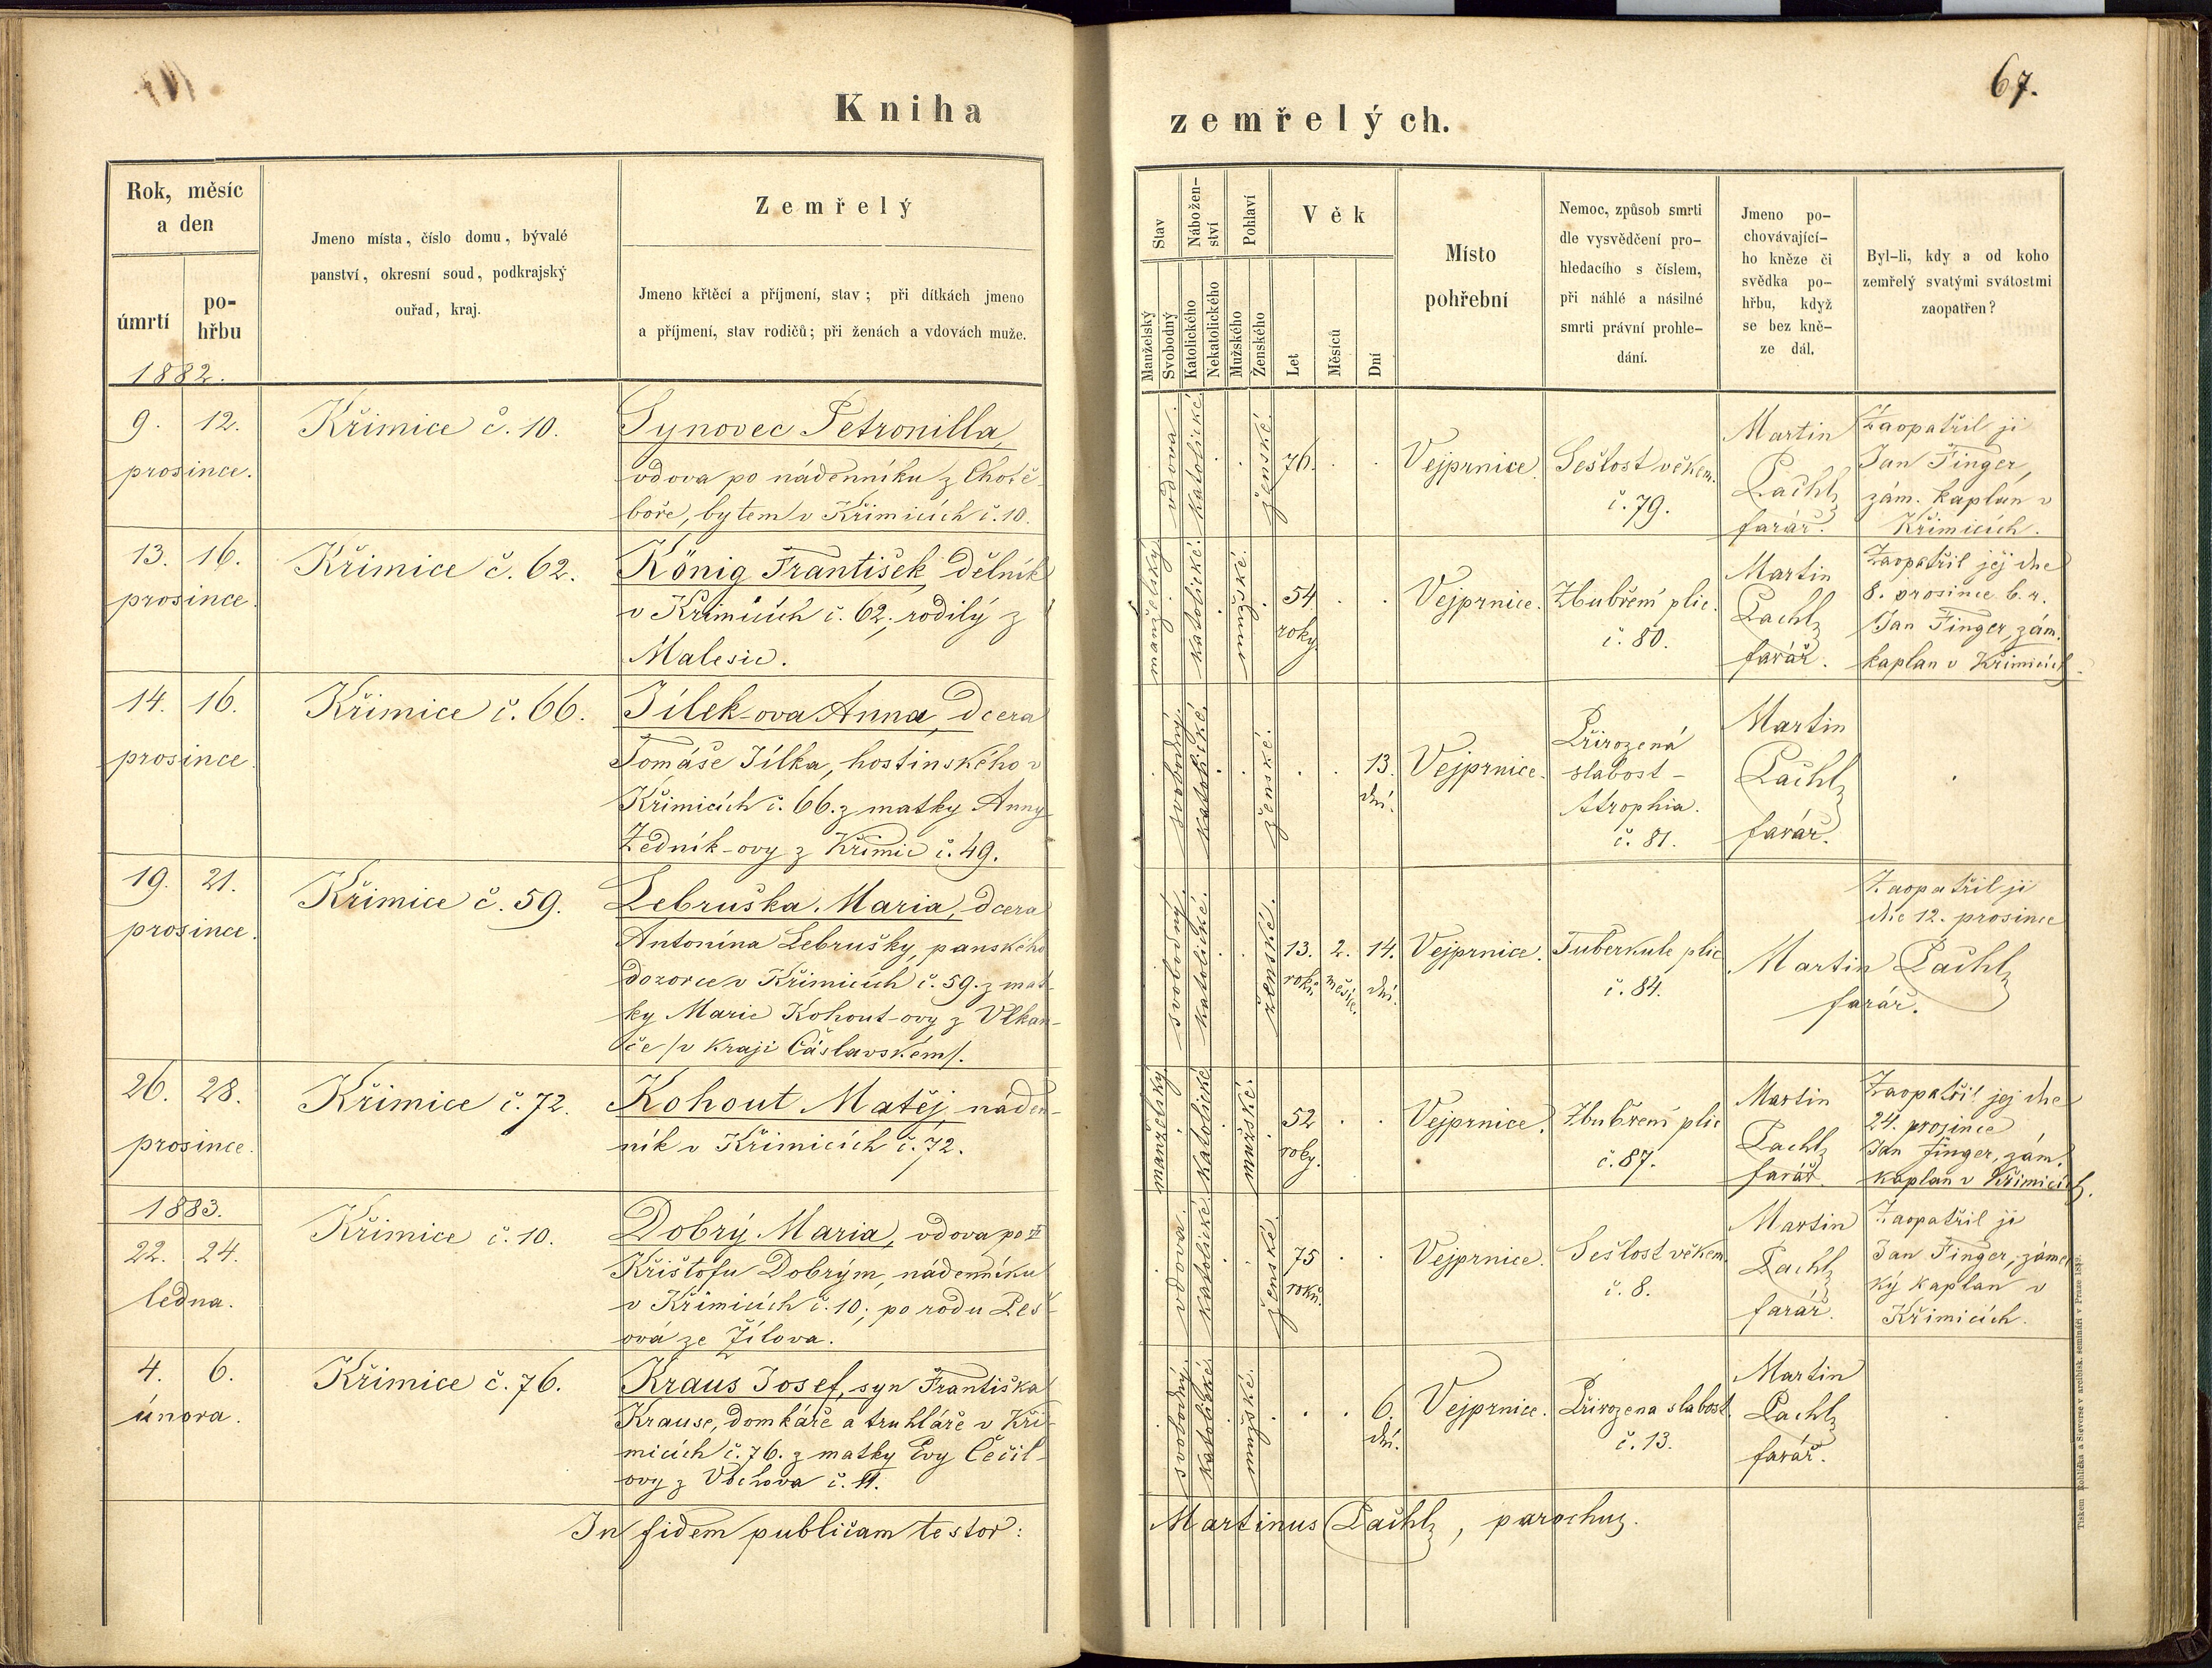 67.
Kniha zemřelých.
Rok, měsíc
a den
úmrtí
po-
hřbu
Jmeno místa, číslo domu, bývalé
panství, okresní soud, podkrajský
ouřad, kraj.
Zemřelý
Jmeno křtěcí a příjmení, stav; při dítkách jmeno
a příjmení, stav rodičů; při ženách a vdovách muže.
Stav
Manželský
Svobodný
Nábožen-
ství
Katolického
Nekatolického
Pohlaví
Mužského
Ženského
Věk
Let
Měsíců
Dní
Místo
pohřební
Nemoc, způsob smrti
dle vysvědčení pro-
hledacího s číslem,
při náhlé a násilné
smrti právní prohle-
dání.
Jmeno po-
chovávající-
ho kněze či
svědka po-
hřbu, když
se bez kně-
ze dál.
Byl-li, kdy a od koho
zemřelý svatými svátostmi
zaopatřen?
1882.
9. 12.
prosince.
Křimice č. 10.
Synovec Petronilla,
vdova po nádenníku z Chotě-
boře, bytem v Křimicích č. 10.
vdova.
katolické.
ženské.
76.
Vejprnice.
Sešlost věkem.
č. 79.
Martin
Pachlz
farář.
Zaopatřil ji
Jan Finger,
zám. kaplan v
Křimicích.
13. 16.
prosince.
Křimice č. 62.
König František, dělník
v Křimicích č. 62, rodilý z
Malesic.
manželský
katolické.
mužské.
54
roky
Vejprnice.
Zhubření plic.
č. 80.
Martin
Pachlz
farář.
Zaopatřil jej dne
8. prosince b. r.
Jan Finger, zám.
kaplan v Křimicích.
14. 16.
prosince.
Křimice č. 66.
Jílek-ova Anna, dcera
Tomáše Jílka, hostinského v
Křimicích č. 66. z matky Anny
Zedník-ovy z Křimic č. 49.
svobodný.
katolické.
ženské.
13.
dní.
Vejprnice.
Přirozená
slabost -
Atrophia.
č. 81.
Martin
Pachlz
farář.
19. 21.
prosince.
Křimice č. 59.
Lebruška Maria, dcera
Antonína Lebrušky, panského
dozorce v Křimicích č. 59. z mat-
ky Marie Kohout-ovy z Vlkan-
če /v kraji Čáslavském/.
svobodný.
katolické.
ženské.
13. 2. 14.
roků měsíce. dní.
Vejprnice.
Tuberkule plic
č. 84.
Zaopatřil ji
dne 12. prosince
Martin Pachlz
farář.
26. 28.
prosince.
Křimice č. 72.
Kohout Matěj, náden-
ník v Křimicích č. 72.
manželský
katolické
mužské.
52
roky.
Vejprnice.
Zhubření plic
č. 87.
Martin
Pachlz
farář.
Zaopatřil jej dne
24. prosince
Jan Finger, zám.
kaplan v Křimicích.
1883.
22. 24.
ledna.
Křimice č. 10.
Dobrý Maria, vdova po
Krištofu Dobrým, nádenníku
v Křimicích č. 10; po rodu Les-
ová ze Žilova.
vdova.
katolické
ženské.
75
roků.
Vejprnice.
Sešlost věkem.
č. 8.
Martin
Pachlz
farář.
Zaopatřil ji
Jan Finger, záme-
ký kaplan v
Křimicích.
4. 6.
února.
Křimice č. 76.
Kraus Josef, syn Františka
Krause, domkáře a truhláře v Kři-
micích č. 76. z matky Evy Čečil-
ovy z Vochova č. 11.
svobodný.
katolické.
mužské.
6.
dní.
Vejprnice.
Přirozena slabost.
č. 13.
Martin
Pachlz
farář.
In fidem publicam testor: Martinus Pachlz, parochus.
Tiskem Rohlíčka a Sieverse v arcibisk. semináři v Praze